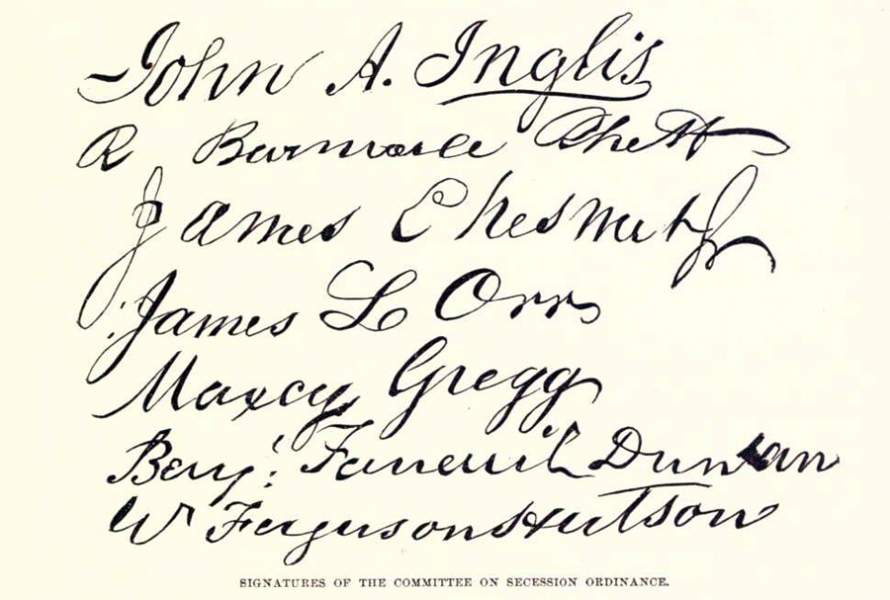 John A. Inglis
R Barnwell Rhett
James Chesnut Jr
James L Orr
Maxcy Gregg
Benj: Faneuil Duncan
W Ferguson Hutson
SIGNATURES OF THE COMMITTEE ON SECESSION ORDINANCE.